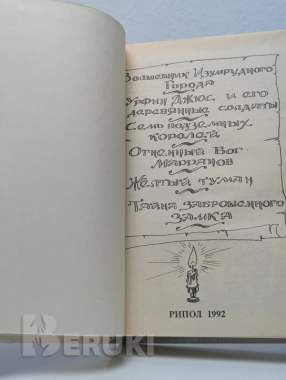 Волшебник Изумрудного
Города
Урфин Джюс и его
деревянные солдаты
Семь подземных
королей
Огненный Бог
Марранов
Жёлтый туман
Тайна заброшенного
замка
РИПОЛ 1992
BERUKI